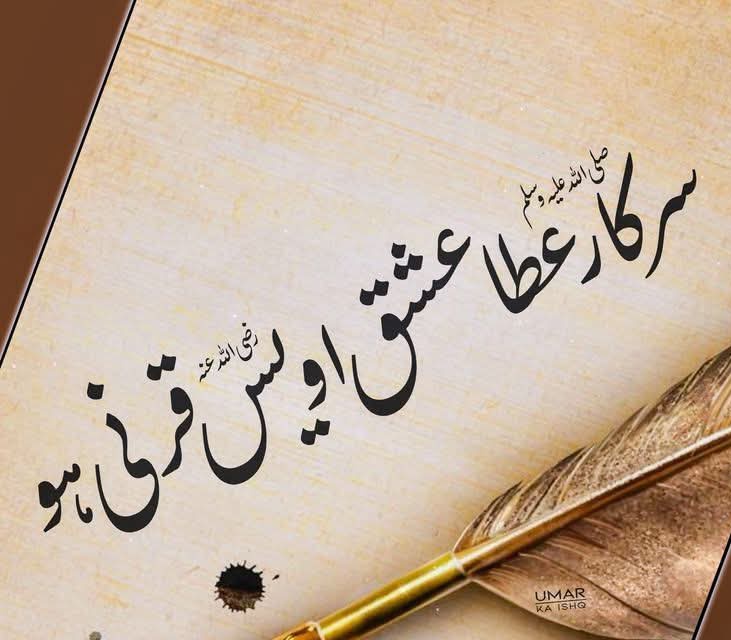 سرکار صلی اللہ علیہ وسلم عطا عشق اویس رضی اللہ عنہ قرنی ہو
UMAR
KA ISHQ